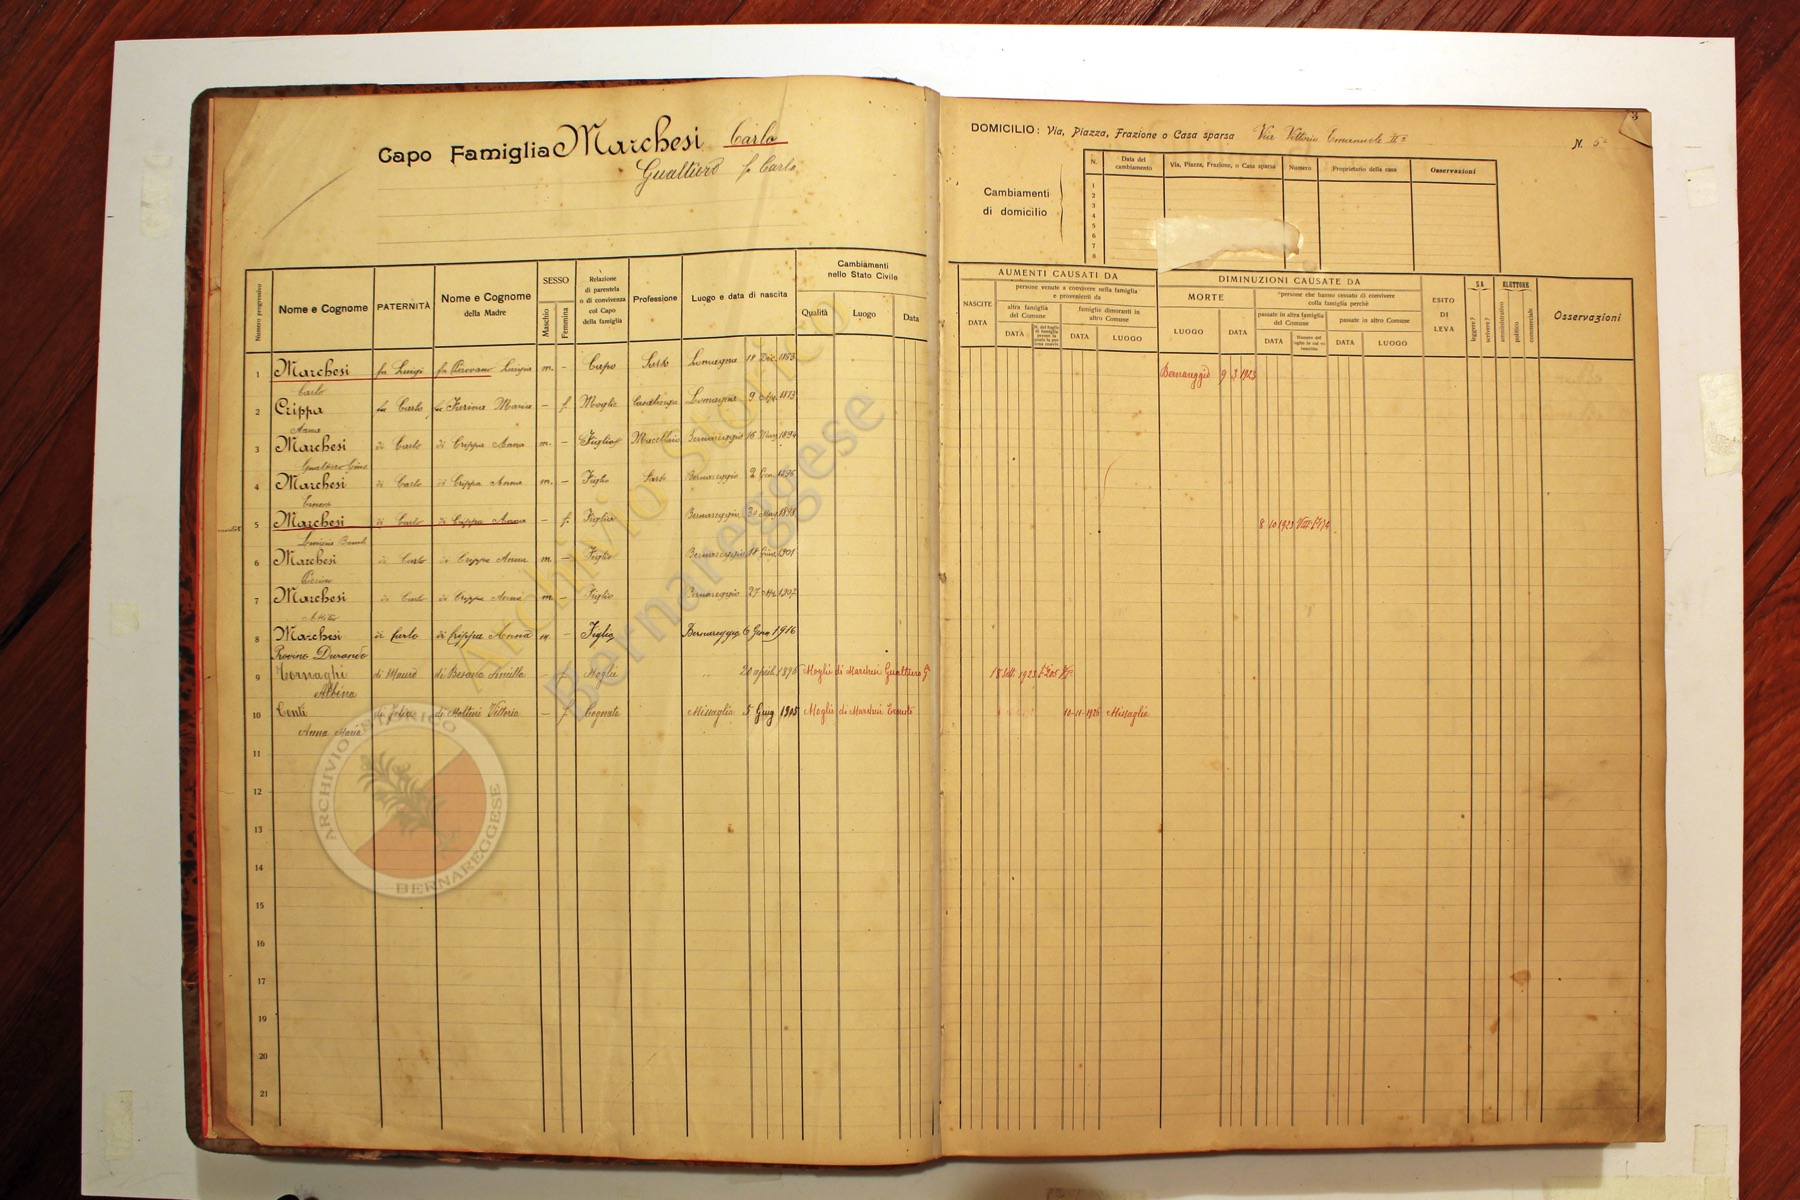 Capo Famiglia Marchesi Carlo
Gualtiero f. Carlo
3
DOMICILIO: Via, Piazza, Frazione o Casa sparsa Via Vittorio Emanuele II°
N. 5
Cambiamenti di domicilio
N. Data del cambiamento Via, Piazza, Frazione, o Casa sparsa Numero Proprietario della casa Osservazioni
1
2
3
4
5
6
7
8
Numero progressivo Nome e Cognome PATERNITÀ Nome e Cognome della Madre SESSO Maschio Femmina Relazione di parentela o di convivenza col Capo della famiglia Professione Luogo e data di nascita Cambiamenti nello Stato Civile Qualità Luogo Data
NASCITE DATA AUMENTI CAUSATI DA persone venute a convivere nella famiglia e provenienti da altra famiglia del Comune DATA famiglie dimoranti in altro Comune DATA LUOGO
DIMINUZIONI CAUSATE DA MORTE LUOGO DATA persone che hanno cessato di convivere colla famiglia perchè passate in altra famiglia del Comune DATA passate in altro Comune DATA LUOGO
ESITO DI LEVA SA leggere? scrivere? ELETTORE amministrativo politico commerciale Osservazioni
1 Marchesi Carlo fu Luigi fu Pirovano Luigia m. – Capo Sarto Lomagna 18 Dic. 1863 Bernareggio 9 3 1923
2 Crippa Anna fu Carlo fu Maria – f. Moglie Casalinga Lomagna 9 1873
3 Marchesi Gualtiero di Carlo di Crippa Anna m. – Figlio Macellaio Bernareggio 16 Marz 1894
4 Marchesi di Carlo di Crippa Anna m. – Figlio Sarto Bernareggio 2 Gen. 1896
5 Marchesi di Carlo di Crippa Anna – f. Figlia Bernareggio 30 1898 8 10 1923
6 Marchesi di Carlo di Crippa Anna m. – Figlio Bernareggio 18 1901
7 Marchesi di Carlo di Crippa Anna m. – Figlio Bernareggio 27 1907
8 Marchesi di Carlo di Crippa Anna m – Figlio Bernareggio 6 1916
9 Albina di Mauro di Besana – f Moglie 20 april 1896 Moglie di Marchesi Gualtiero 18 Sett. 1923
10 Conti Anna Maria di Felice di Vittoria – f Cognata Missaglia 5 Giug 1905 Moglie di Marchesi Ernesto 10-11-1926 Missaglia
11
12
13
14
15
16
17
18
19
20
21
Archivio Storico
Bernareggese
ARCHIVIO STORICO
BERNAREGGESE